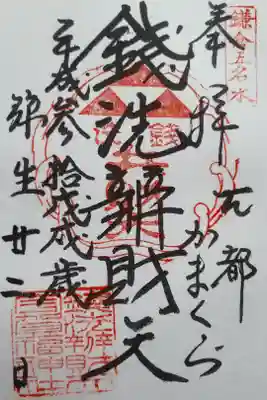 鎌倉五名水
奉拝
古都
かまくら
錢洗辨財天
平成参拾戊戌歳
弥生廿二日